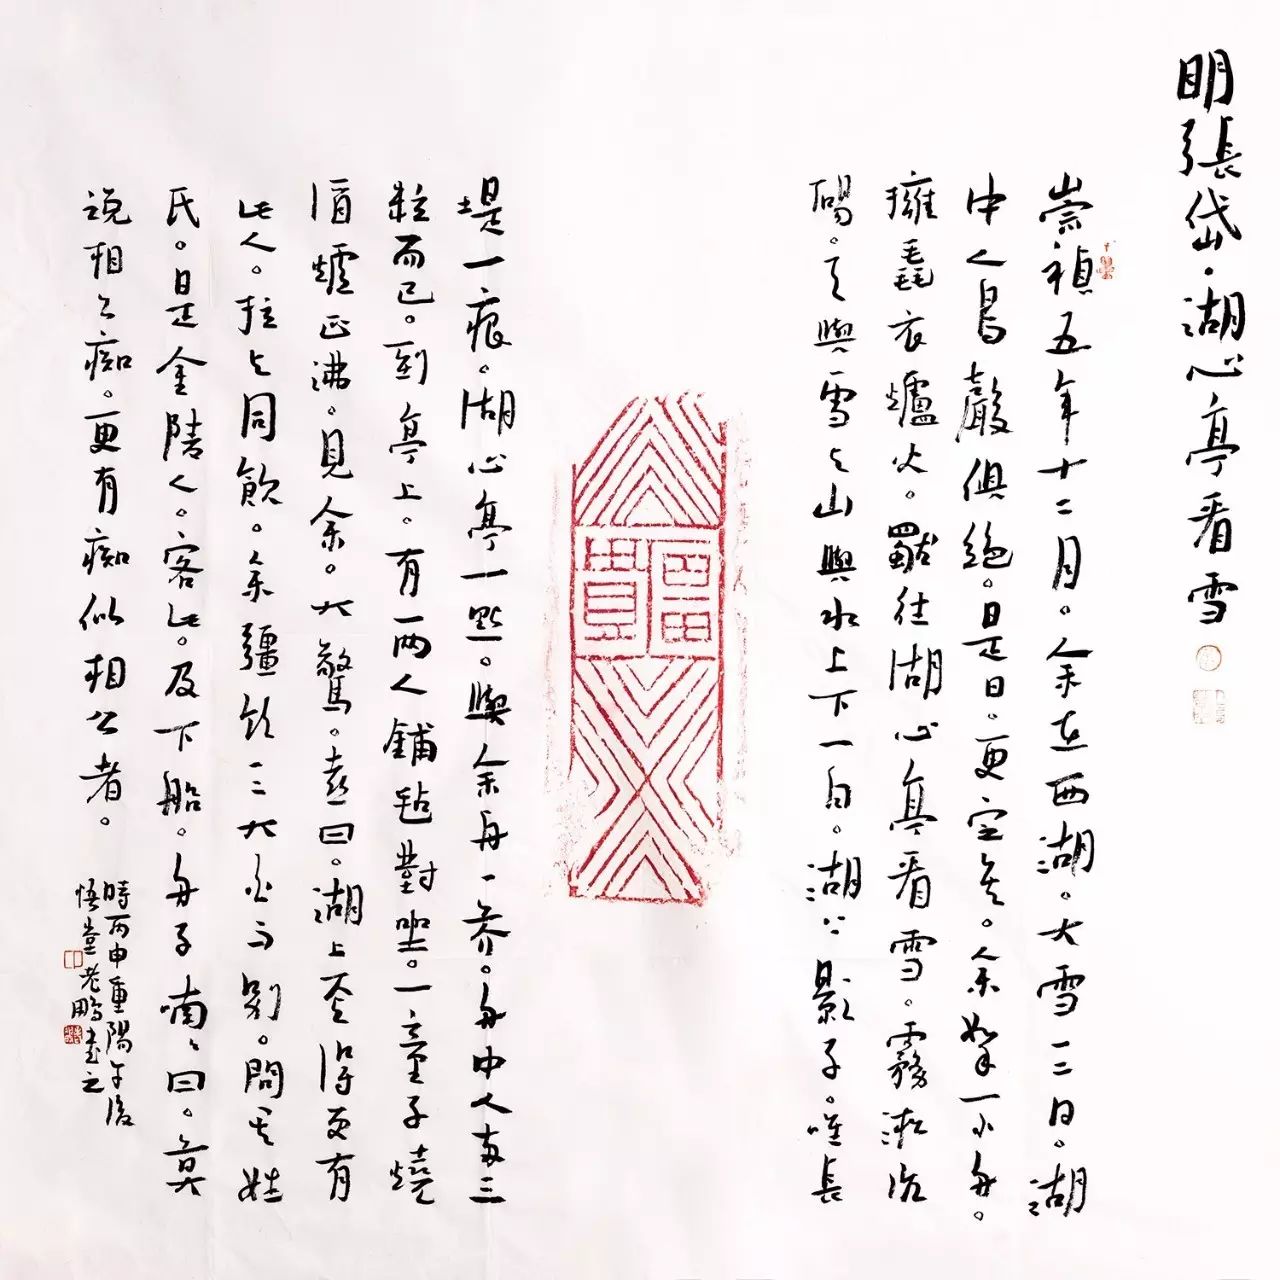 明張岱·湖心亭看雪
崇禎五年十二月。余在西湖。大雪三日。湖
中人鳥聲俱絕。是日。更定矣。余拏一小舟。
擁毳衣爐火。獨往湖心亭看雪。霧凇沆
碭。天與雪与山與水上下一白。湖上影子。唯長
富貴
堤一痕。湖心亭一點。與余舟一芥。舟中人兩三
粒而已。到亭上。有兩人鋪毡對坐。一童子燒
酒爐正沸。見余。大驚。喜曰。湖上焉得更有
此人。拉与同飲。余彊飲三大白而別。問其姓
氏。是金陵人。客此。及下船。舟子喃喃曰。莫
說相公痴。更有痴似相公者。
時丙申重陽午後
悟堂老鵬書之